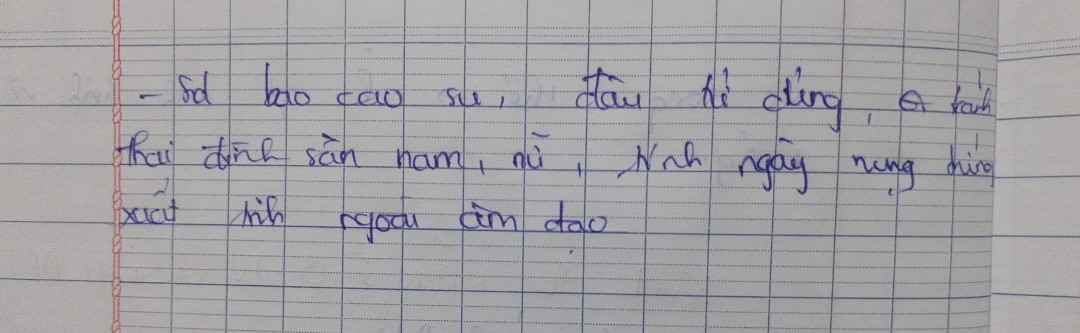 - Sd bao cao su, đầu đỉ đứng, θ tránh
thai đình sản nam, nữ, tính ngày rụng trứng
xuất tinh ngoài âm đạo